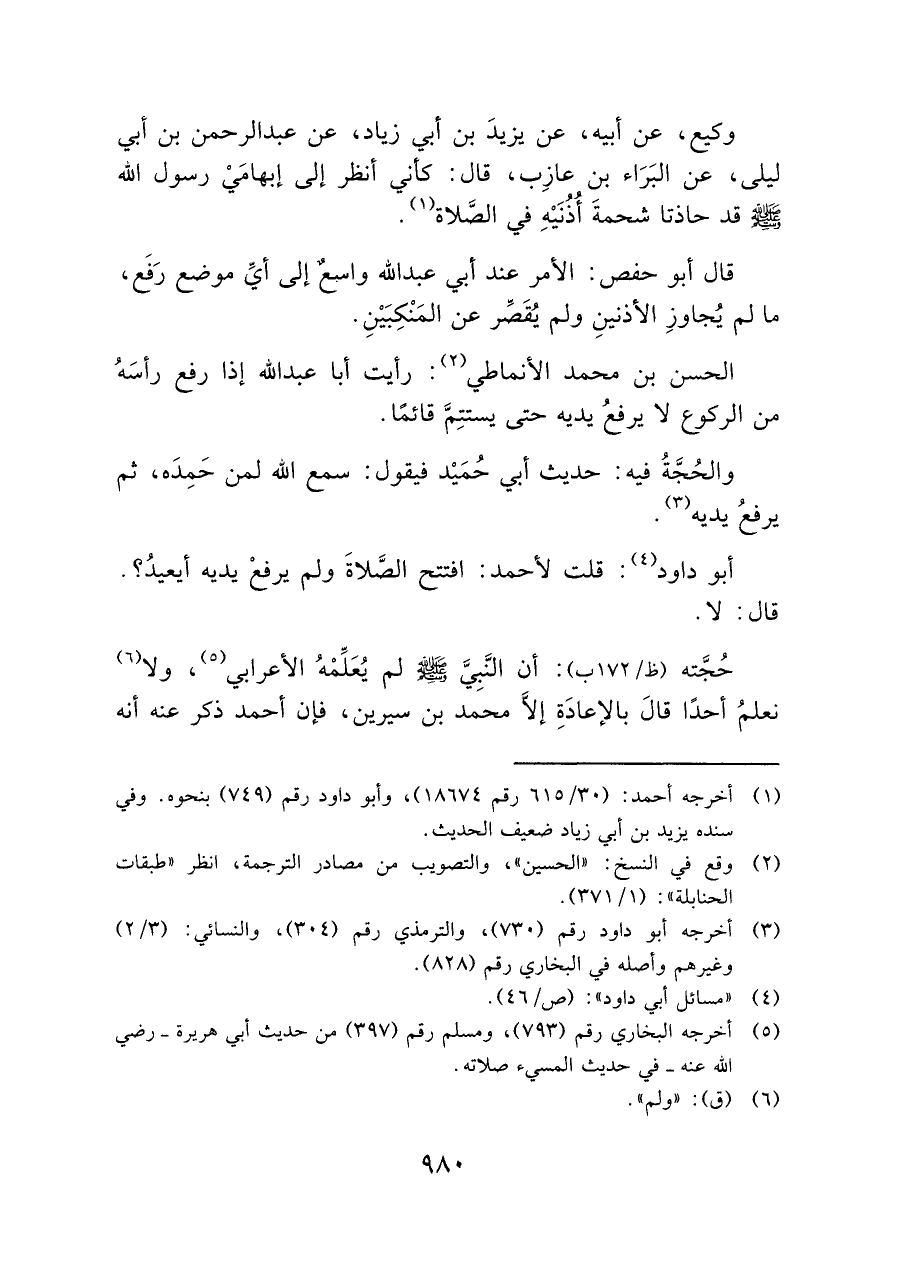 وكيع، عن أبيه، عن يزيدَ بن أبي زياد، عن عبدالرحمن بن أبي
ليلى، عن البَرَاء بن عازِب، قال: كأني أنظر إلى إبهامَيْ رسول الله
ﷺ قد حاذتا شحمةَ أُذُنَيْهِ في الصَّلاة(١).
قال أبو حفص: الأمر عند أبي عبدالله واسعٌ إلى أيِّ موضع رَفَع،
ما لم يُجاوزِ الأذنينِ ولم يُقَصِّر عن المَنْكِبَيْنِ.
الحسن بن محمد الأنماطي(٢): رأيت أبا عبدالله إذا رفع رأسَهُ
من الركوع لا يرفعُ يديه حتى يستتِمَّ قائمًا.
والحُجَّةُ فيه: حديث أبي حُمَيْد فيقول: سمع الله لمن حَمِدَه، ثم
يرفعُ يديه(٣).
أبو داود(٤): قلت لأحمد: افتتح الصَّلاةَ ولم يرفعْ يديه أيعيدُ؟.
قال: لا.
حُجَّته (ظ/١٧٢ب): أن النَّبِيَّ ﷺ لم يُعَلِّمْهُ الأعرابي(٥)، ولا(٦)
نعلمُ أحدًا قالَ بالإعادَةِ إلاَّ محمد بن سيرين، فإن أحمد ذكر عنه أنه
(١) أخرجه أحمد: (٣٠/ ٦١٥ رقم ١٨٦٧٤)، وأبو داود رقم (٧٤٩) بنحوه. وفي
سنده يزيد بن أبي زياد ضعيف الحديث.
(٢) وقع في النسخ: «الحسين»، والتصويب من مصادر الترجمة، انظر «طبقات
الحنابلة»: (١/ ٣٧١).
(٣) أخرجه أبو داود رقم (٧٣٠)، والترمذي رقم (٣٠٤)، والنسائي: (٣/ ٢)
وغيرهم وأصله في البخاري رقم (٨٢٨).
(٤) «مسائل أبي داود»: (ص/ ٤٦).
(٥) أخرجه البخاري رقم (٧٩٣)، ومسلم رقم (٣٩٧) من حديث أبي هريرة ـ رضي
الله عنه ـ في حديث المسيء صلاته.
(٦) (ق): «ولم».
٩٨٠